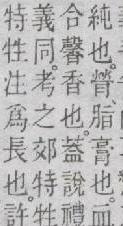 純也。膋脂膏也。血
合馨香也。蓋說禮
義同考之郊特牲
特牲注爲長也。許